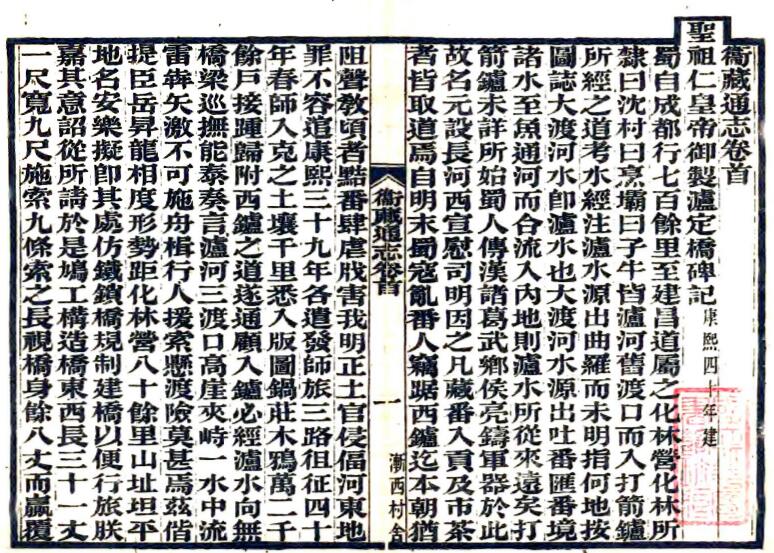 衞藏通志卷首
聖祖仁皇帝御製瀘定橋碑記康熙四十年建
蜀自成都行七百餘里至建昌道屬之化林營化林所
隸曰沈村曰烹壩曰子牛皆瀘河舊渡口而入打箭鑪
所經之道考水經注瀘水源出曲羅而未明指何地按
圖誌大渡河水卽瀘水也大渡河水源出吐番匯番境
諸水至魚通河而合流入內地則瀘水所從來遠矣打
箭鑪未詳所始蜀人傳漢諸葛武鄉侯亮鑄軍器於此
故名元設長河西宣慰司明因之凡藏番入貢及市茶
者皆取道焉自明末蜀寇亂番人竊踞西鑪迄本朝猶
衞藏通志卷首
一
漸西村舍
阻聲敎頃者黠番肆虐戕害我明正土官侵偪河東地
罪不容逭康熙三十九年各遣發師旅三路徂征四十
年春師入克之土壤千里悉入版圖鍋莊木鴉萬二千
餘戶接踵歸附西鑪之道遂通顧入鑪必經瀘水向無
橋梁巡撫能泰奏言瀘河三渡口高崖夾峙一水中流
雷犇矢激不可施舟楫行人援索懸渡險莫甚焉兹偕
提臣岳昇龍相度形勢距化林營八十餘里山址坦平
地名安樂擬卽其處仿鐵鎖橋規制建橋以便行旅朕
嘉其意詔從所請於是鳩工構造橋東西長三十一丈
一尺寬九尺施索九條索之長視橋身餘八丈而贏覆